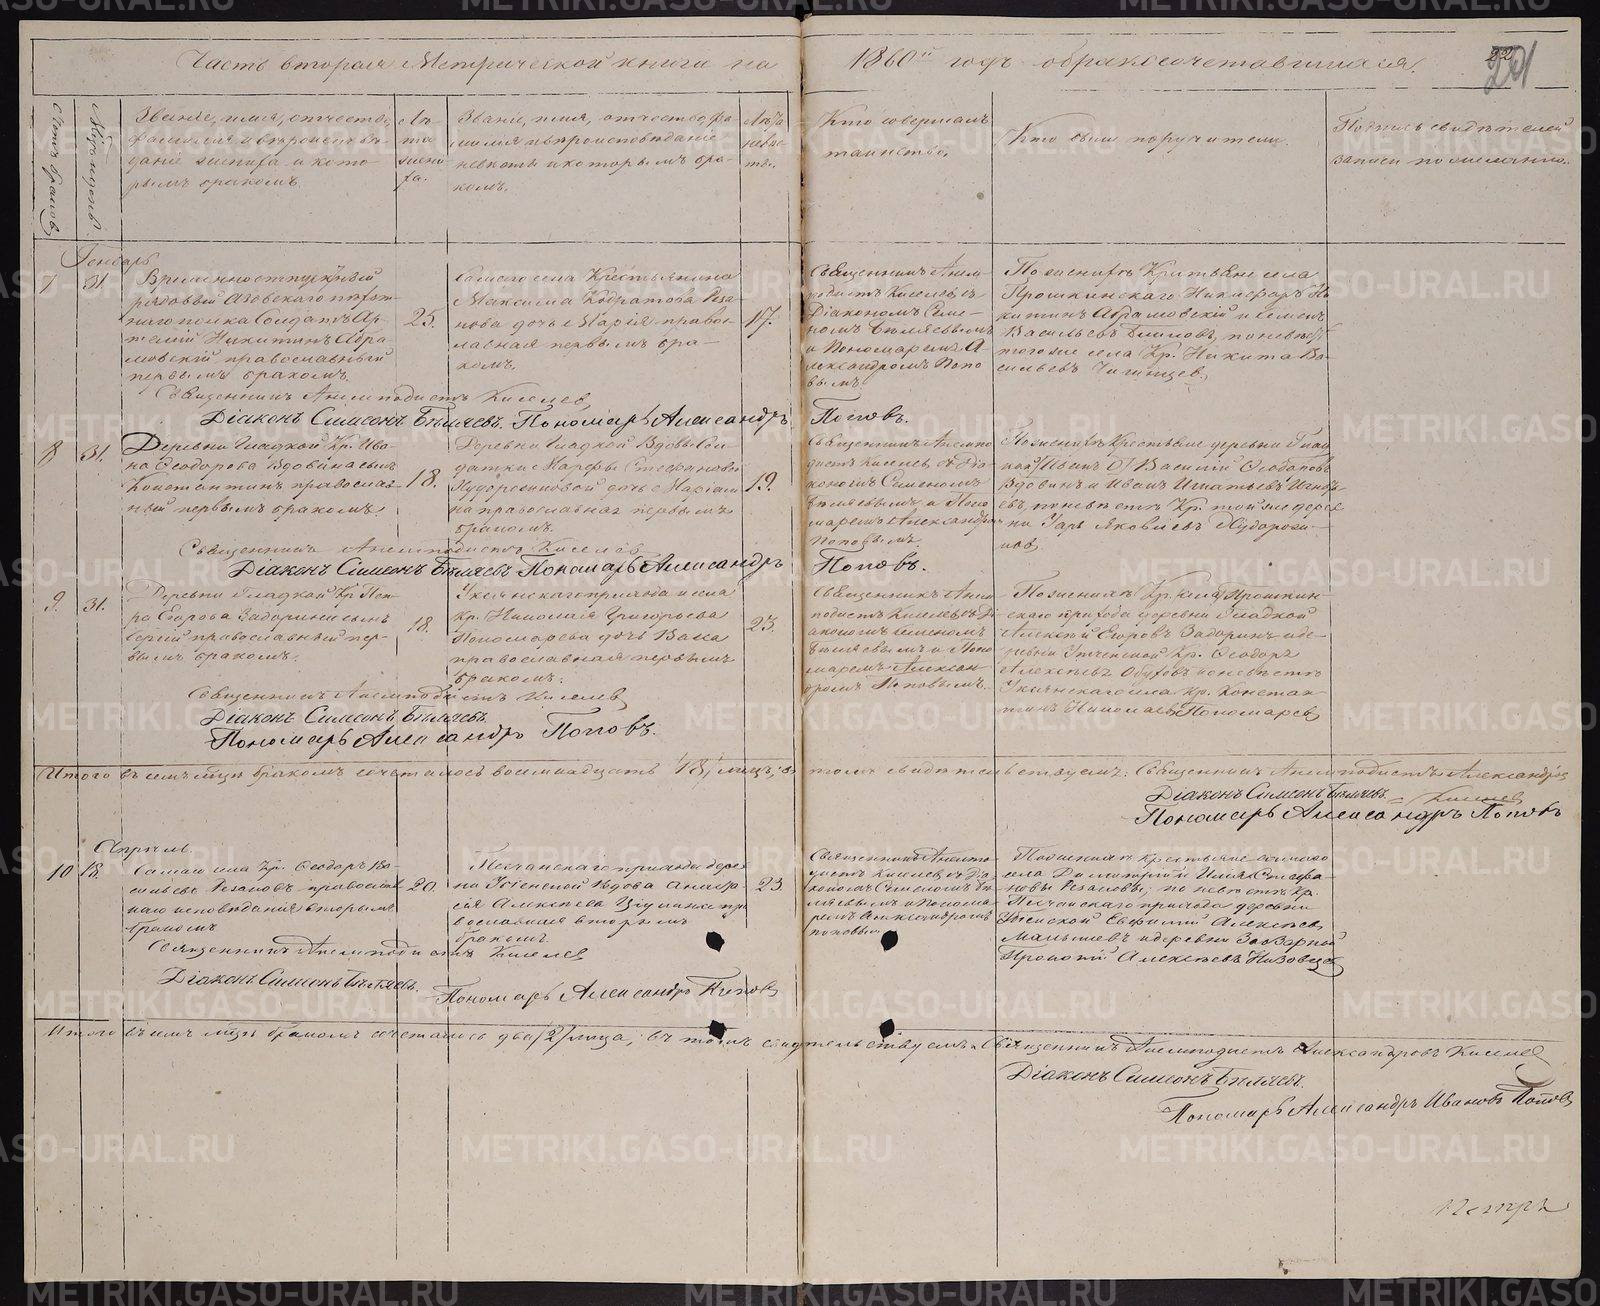 Часть вторая Метрической книги на 1860й годъ о бракосочетавшихся.
22
Счетъ браковъ.
Мѣсяцъ и день.
Званіе, имя, отчество,
фамилія и вѣроисповѣ-
даніе жениха и кото-
рымъ бракомъ.
Лѣ-
та
жени-
ха.
Званіе, имя, отчество, фа-
милія и вѣроисповѣданіе
невѣсты и которымъ бра-
комъ.
Лѣта
невѣс-
ты.
Кто совершалъ
таинство.
Кто были поручители.
Подпись свидѣтелей
записи по желанію.
Генварь
7
31
Временноотпускный
рядовый Азовскаго пѣхот-
наго полка Солдатъ Ар-
темій Никитинъ Абра-
мовскій православный
первымъ бракомъ.
25.
Самаго села Крестьянина
Максима Кодратова Реза-
нова дочь Марія право-
славная первымъ бра-
комъ.
17.
Священникъ Анем-
подистъ Киселевъ съ
Діакономъ Симе-
номъ Бѣляевымъ
и Пономаремъ А-
лександромъ Попо-
вымъ.
По женихѣ Крестьяне села
Прошкинскаго Никифоръ Ни-
китинъ Абрамовскій и Семенъ
Васильевъ
по невѣстѣ
тогоже села Кр. Никита Ва-
сильевъ
Священникъ Анемподистъ Киселев
Діаконъ Симеонъ Бѣляевъ. Пономарь Александръ Поповъ.
8
31.
Деревни Гладкой Кр. Ива-
на Ѳеодорова Вдовина сынъ
Константинъ православ-
ный первымъ бракомъ.
18.
Деревни Гладкой Вдовы Сол-
датки Марфы Стефановой
дочь Маріам-
на православная первымъ
бракомъ.
19.
Священникъ Анемпо-
дистъ Киселевъ съ Діа-
кономъ Симеономъ
Бѣляевымъ и Поно-
маремъ Александромъ
Поповымъ.
По женихѣ Крестьяне деревни Глад-
кой Иванъ и Василій Ѳеодоровы
Вдовины и Иванъ Игнатьевъ
по невѣстѣ Кр. той же дерев-
ни Яковлевъ
Священникъ Анемподистъ Киселев
Діаконъ Симеонъ Бѣляевъ Пономарь Александръ Поповъ.
9.
31.
Деревни Гладкой Кр. Пет-
ра Егорова Задорина сынъ
Сергій православный пер-
вымъ бракомъ.
18.
Укянскаго прихода и села
Кр. Николая Григорьева
Пономарева дочь Васса
православная первымъ
бракомъ.
23.
Священникъ Анем-
подистъ Киселевъ съ Ді-
акономъ Симеономъ
Бѣляевымъ и Поно-
маремъ Алексан-
дромъ Поповымъ.
По женихѣ Кр. села Прошкин-
скаго прихода деревни Гладкой
Алексѣй Егоровъ Задоринъ и де-
ревни Кр. Ѳеодоръ
Алексѣевъ Обуховъ по невѣстѣ
Укянскаго села Кр. Констан-
тинъ Николаевъ Пономаревъ
Священникъ Анемподистъ Киселев
Діаконъ Симеонъ Бѣляевъ.
Пономарь Александръ Поповъ.
Итого въ семъ мѣсяцѣ бракомъ сочеталось восемнадцать /18/ лицъ; въ томъ свидѣтельствуемъ: Священникъ Анемподистъ Александровъ
Діаконъ Симеонъ Бѣляевъ. = Киселев
Пономарь Александръ Поповъ
Апрѣль
10
18.
Самаго села Кр. Ѳеодоръ Ва-
сильевъ Резановъ православ-
наго исповѣданія вторымъ
бракомъ
20.
Песчанскаго прихода дерев-
ни Вдова Анаста-
сія Алексѣева пра-
вославная вторымъ
бракомъ.
23.
Священникъ Анемпо-
дистъ Киселевъ съ Діа-
кономъ Симеономъ Бѣ-
ляевымъ и Понома-
ремъ Александромъ
Поповымъ
По женихѣ Крестьяне самаго
села Димитрій и Илья Стефа-
новы Резановы; по невѣстѣ Кр.
Песчанскаго прихода деревни
Евфимій Алексѣевъ
Малышевъ и деревни Заозерной
Прокопій Алексѣевъ Низовцев
Священникъ Анемподистъ Киселев
Діаконъ Симеонъ Бѣляевъ. Пономарь Александръ Поповъ
Итого въ семъ мѣсяцѣ бракомъ сочеталось два /2/ лица; въ томъ свидѣтельствуемъ: Священникъ Анемподистъ Александровъ Киселев
Діаконъ Симеонъ Бѣляевъ.
Пономарь Александръ Ивановъ Поповъ
METRIKI.GASO-URAL.RU